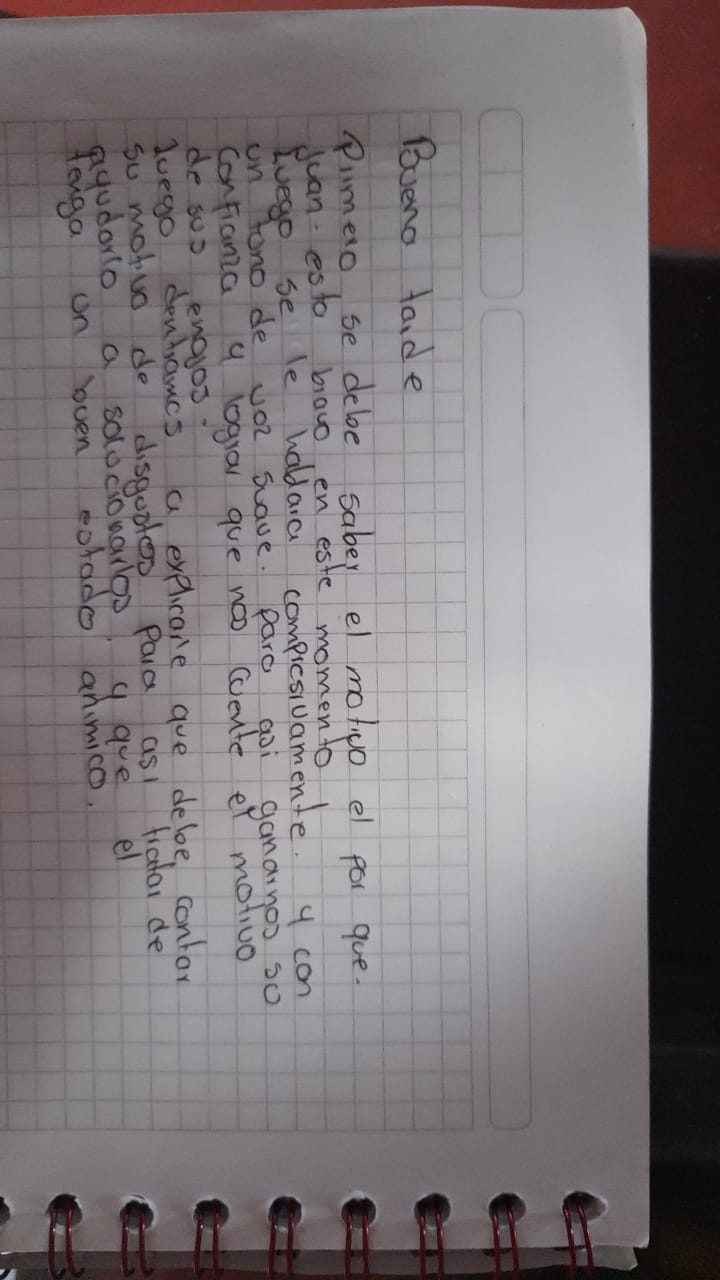 Buena tarde
Primero se debe saber el motivo el por que.
Juan. esta bravo en este momento
luego se le hablara compresivamente. y con
un tono de voz suave. para asi ganarnos su
confianza y lograr que nos cuente el motivo
de sus enojos.
luego dentramos a explicarle que debe contar
su motivo de disgustos para asi tratar de
ayudarlo a solocionarlos. y que el
tenga un buen estado animico.